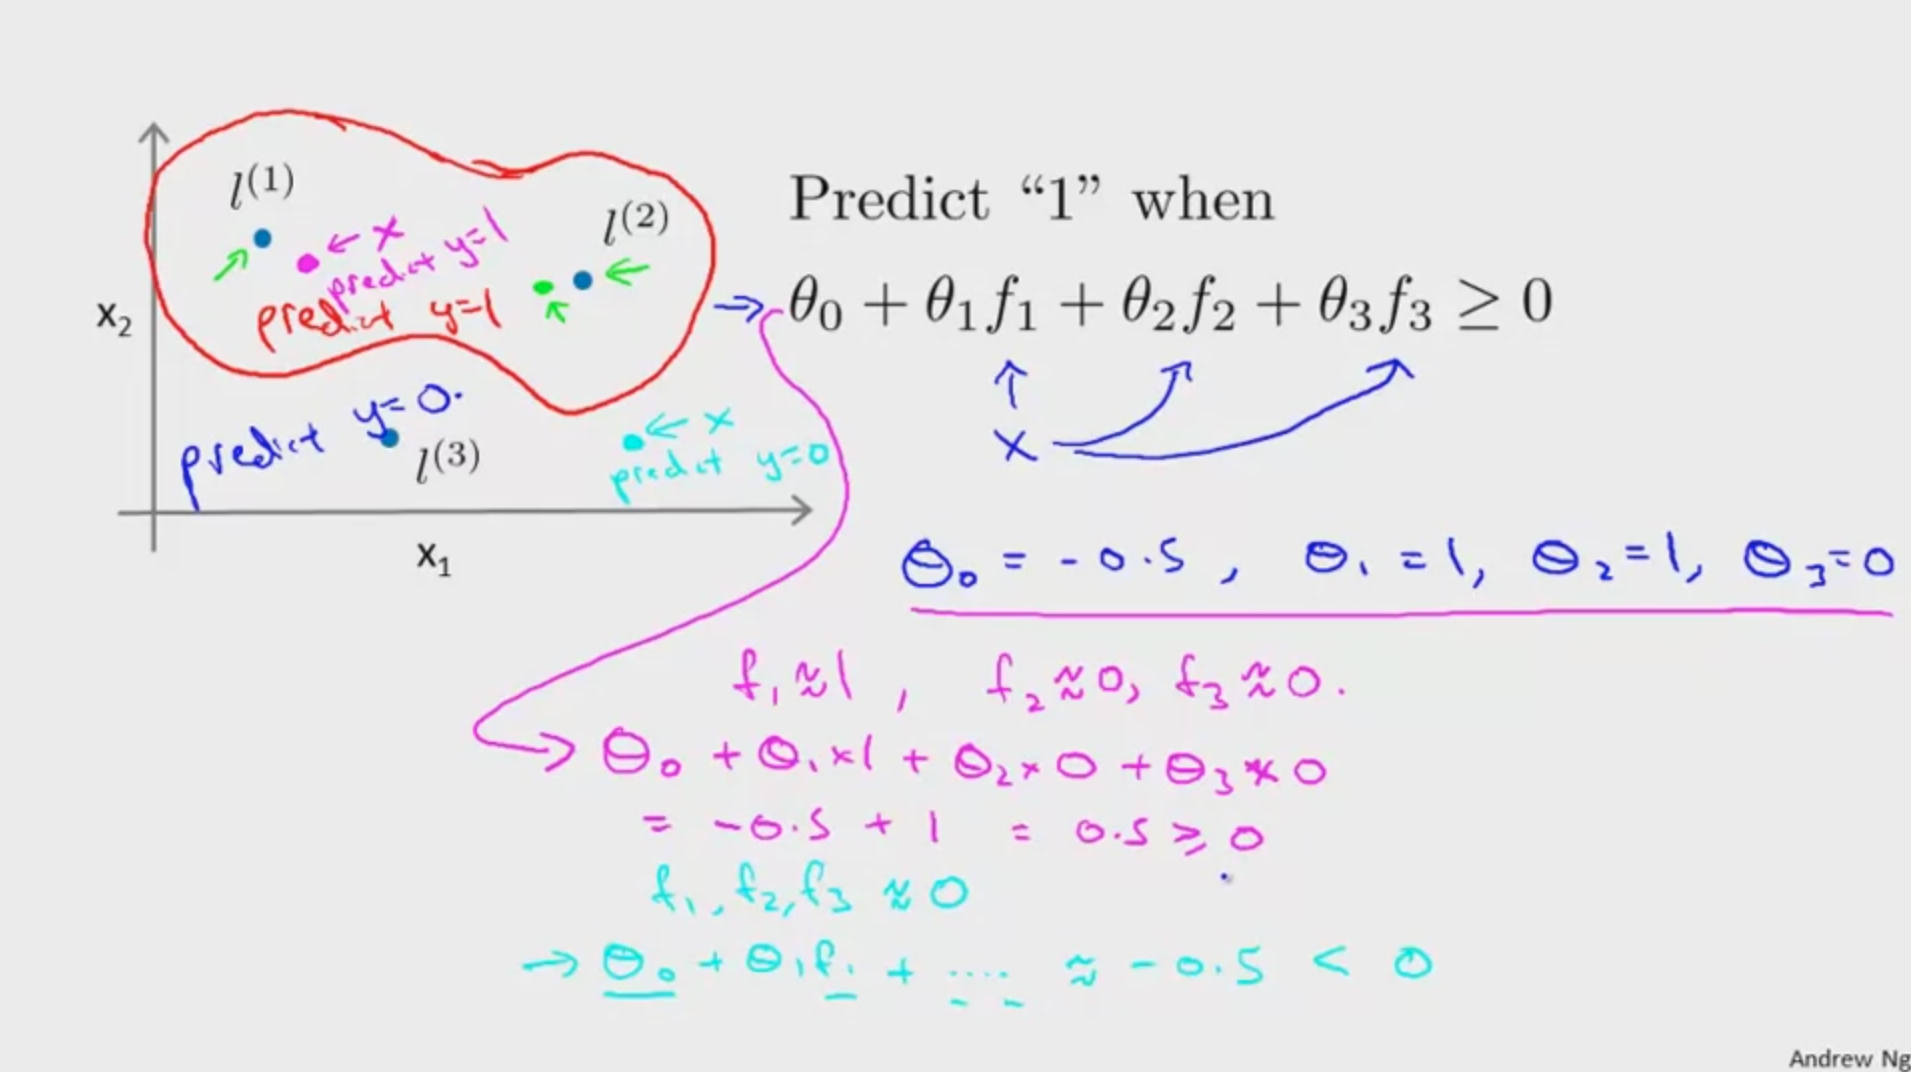 l^{(1)}
← x
predict y=1
l^{(2)}
predict y=1
x₂
predict y=0.
l^{(3)}
← x
predict y=0
x₁
Predict “1” when
⇒ θ₀ + θ₁f₁ + θ₂f₂ + θ₃f₃ ≥ 0
x
θ₀ = -0.5, θ₁ = 1, θ₂ = 1, θ₃ = 0
f₁ ≈ 1, f₂ ≈ 0, f₃ ≈ 0.
→ θ₀ + θ₁×1 + θ₂×0 + θ₃×0
= -0.5 + 1 = 0.5 ≥ 0
f₁, f₂, f₃ ≈ 0
→ θ₀ + θ₁f₁ + .... ≈ -0.5 < 0
Andrew Ng